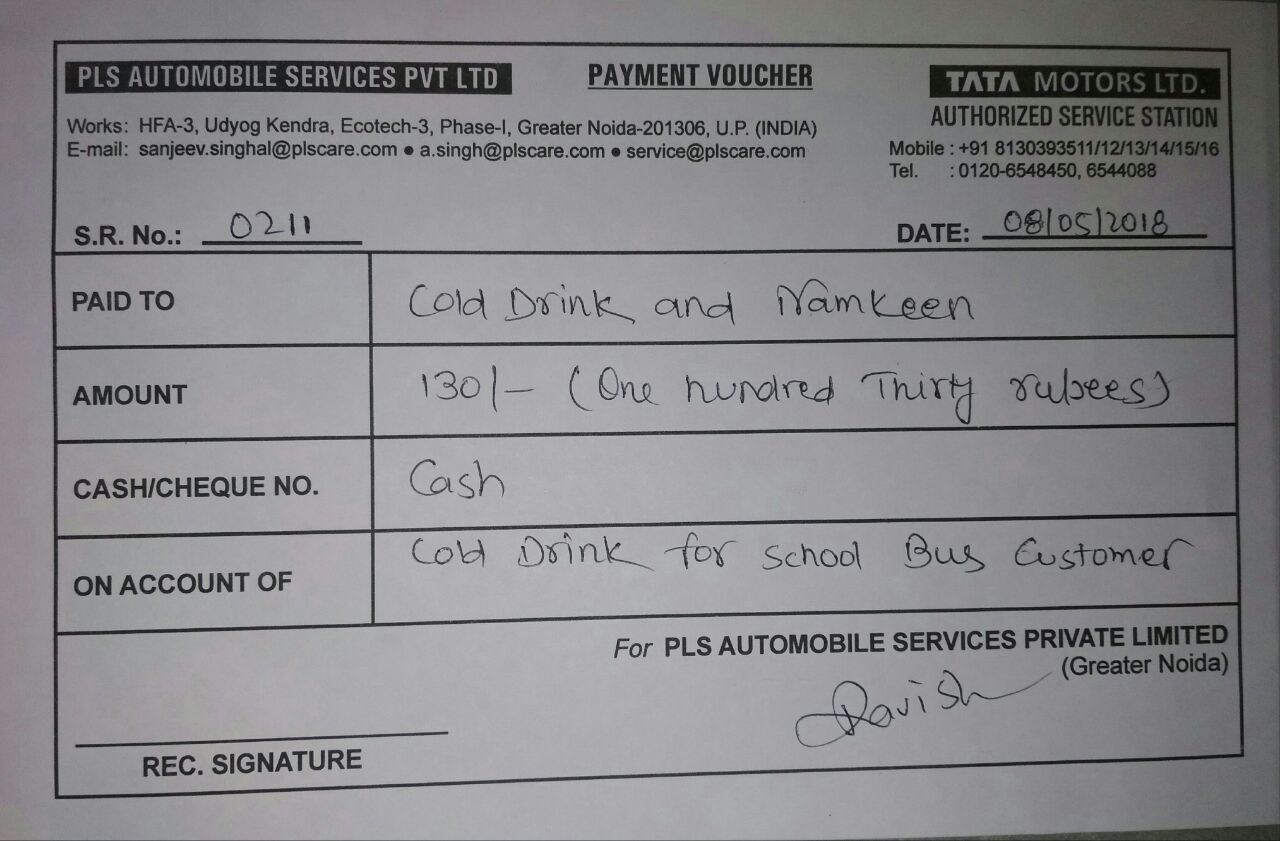 PLS AUTOMOBILE SERVICES PVT LTD
PAYMENT VOUCHER
TATA MOTORS LTD.
AUTHORIZED SERVICE STATION
Works: HFA-3, Udyog Kendra, Ecotech-3, Phase-I, Greater Noida-201306, U.P. (INDIA)
E-mail: sanjeev.singhal@plscare.com • a.singh@plscare.com • service@plscare.com
Mobile : +91 8130393511/12/13/14/15/16
Tel. : 0120-6548450, 6544088
S.R. No.: 0211
DATE: 08/05/2018
PAID TO Cold Drink and Namkeen
AMOUNT 130/- (One hundred Thirty rubees)
CASH/CHEQUE NO. Cash
ON ACCOUNT OF Cold Drink for School Bus Customer
For PLS AUTOMOBILE SERVICES PRIVATE LIMITED
(Greater Noida)
Ravish
REC. SIGNATURE